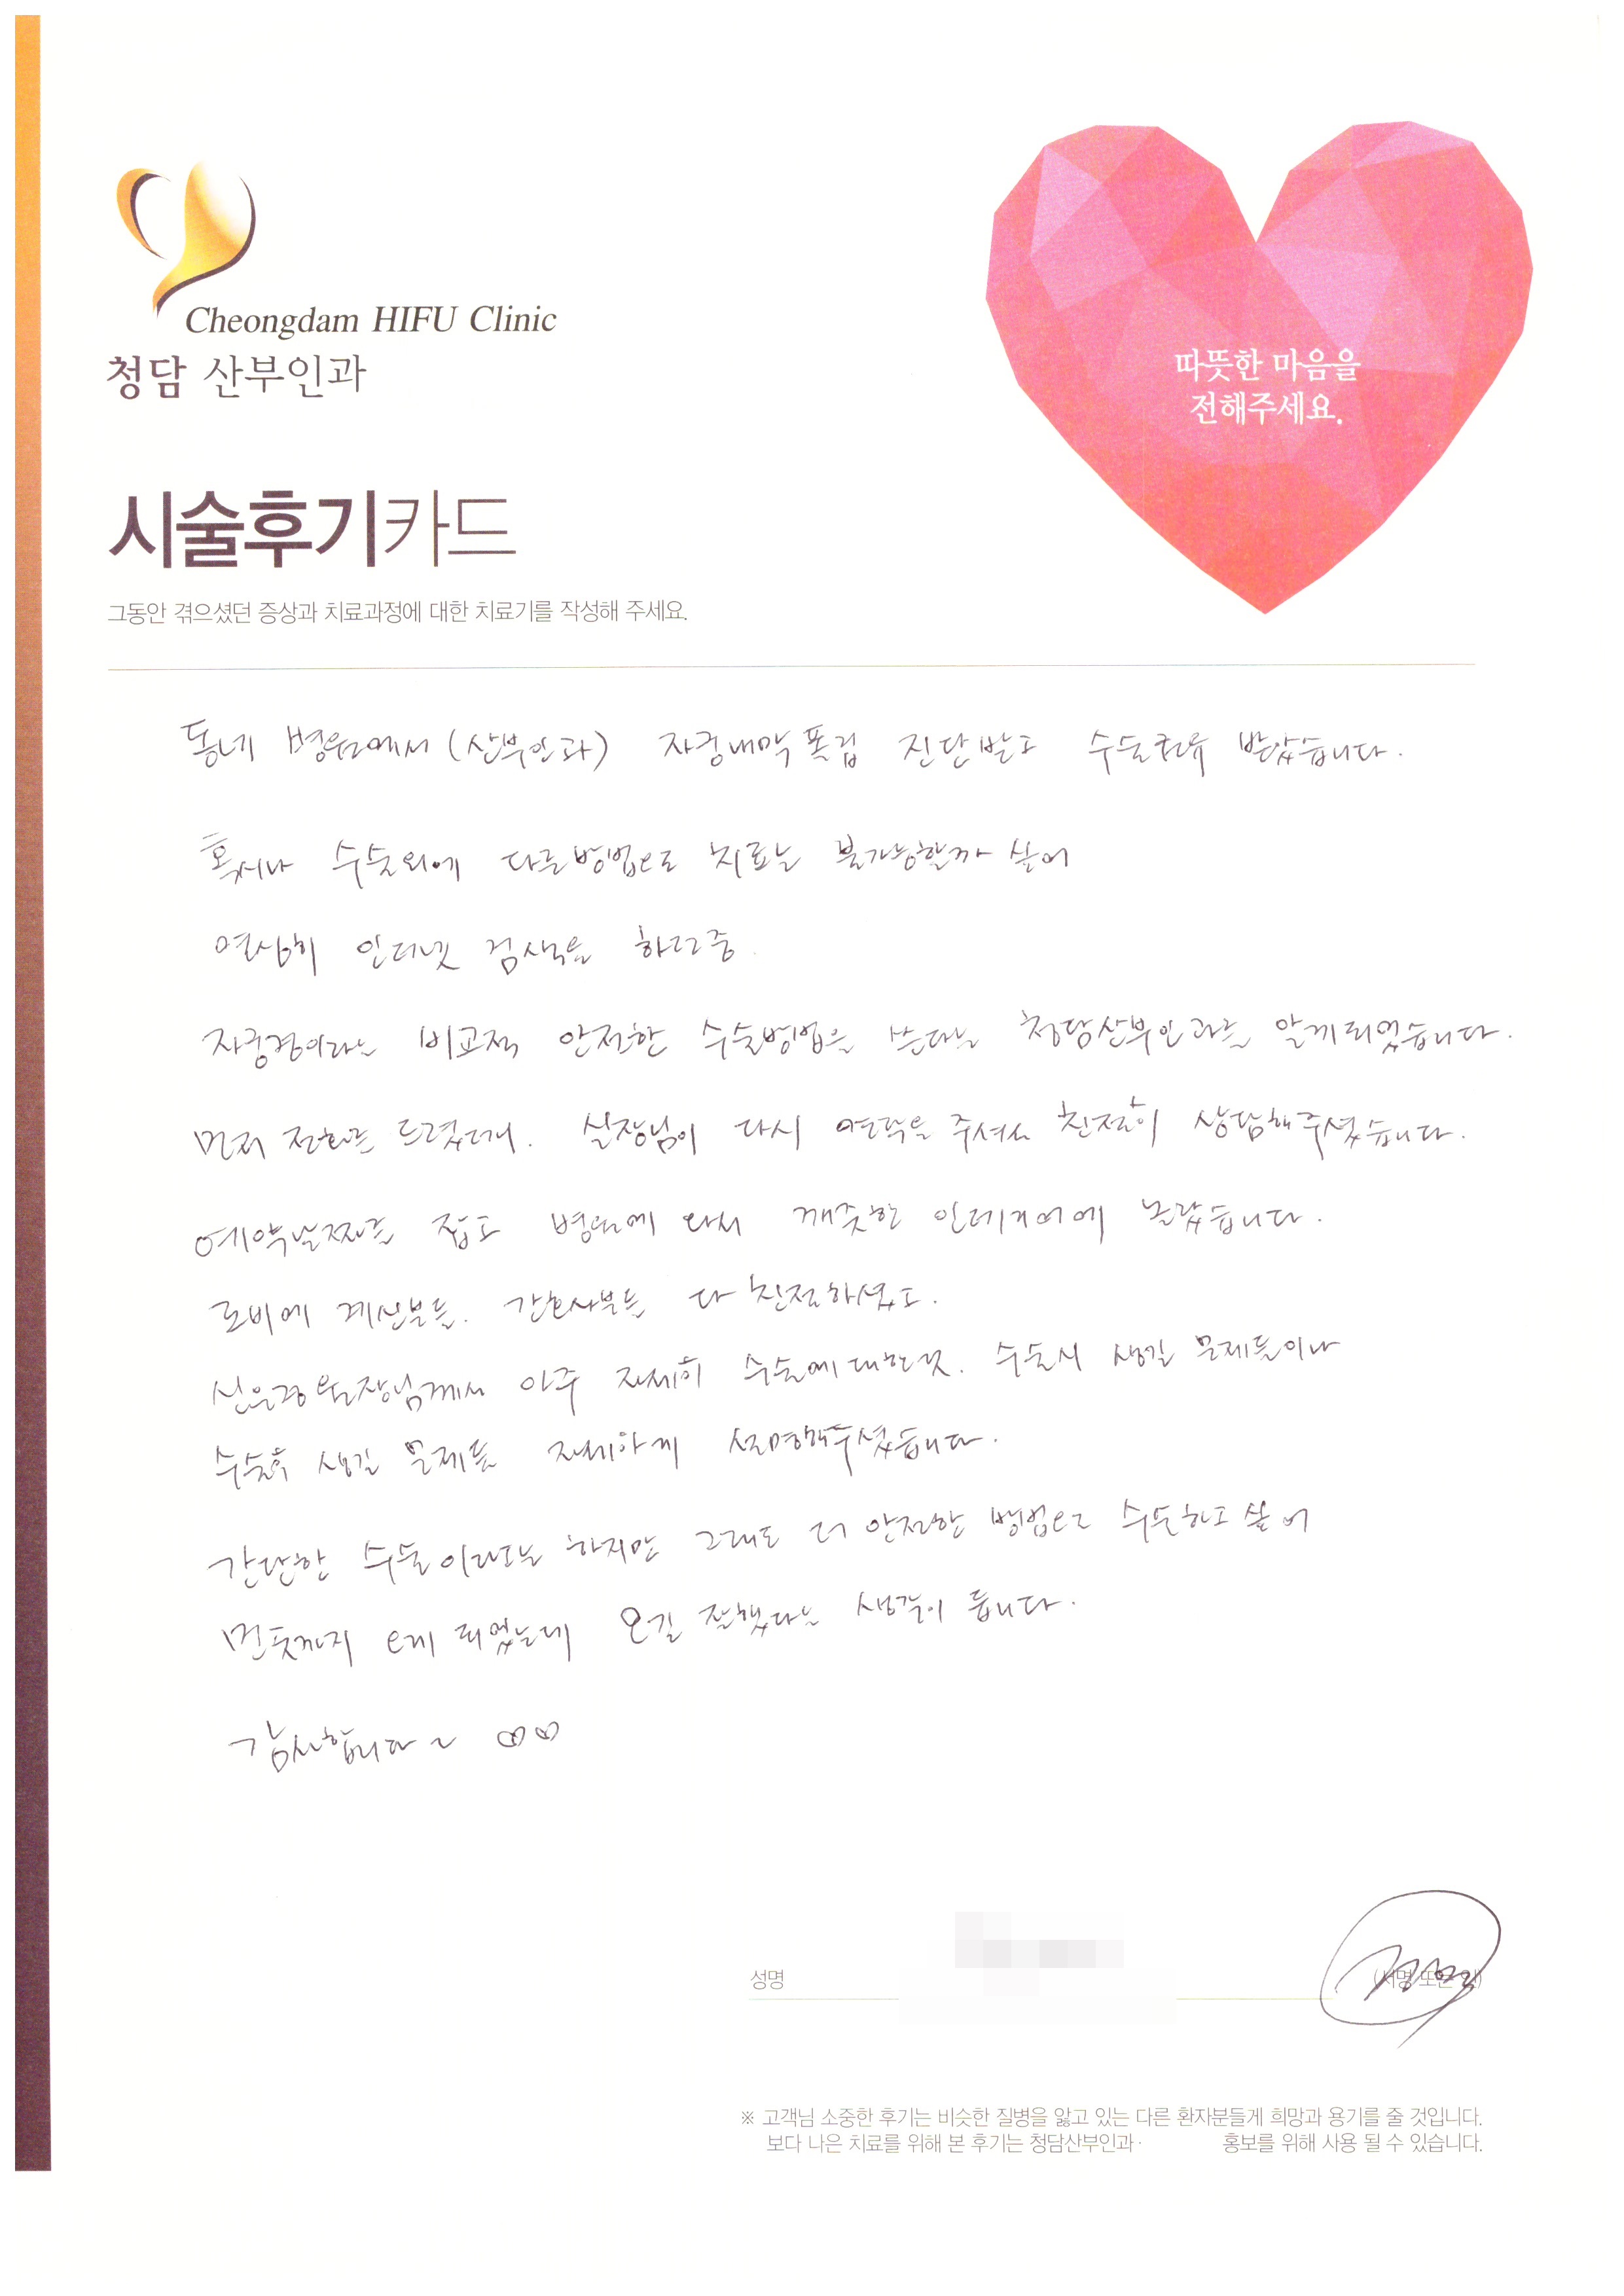 Cheongdam HIFU Clinic
청담 산부인과
따뜻한 마음을
전해주세요.
시술후기카드
그동안 겪으셨던 증상과 치료과정에 대한 치료기를 작성해 주세요.
동네 병원에서 (산부인과) 자궁내막폴립 진단받고 수술권유 받았습니다.
혹시나 수술외에 다른방법으로 치료는 불가능할까 싶어
열심히 인터넷 검색을 하던중
자궁경이라는 비교적 안전한 수술방법을 쓴다는 청담산부인과를 알게되었습니다.
먼저 전화를 드렸는데. 실장님이 다시 연락을 주셔서 친절히 상담해주셨습니다.
예약날짜를 잡고 병원에 와서 깨끗한 인테리어에 놀랐습니다.
로비에 계신분들. 간호사분들 다 친절하셨고.
신은경원장님께서 아주 자세히 수술에대한것. 수술시 생길 문제들이나
수술후 생길 문제들 자세하게 설명해주셨습니다.
간단한 수술이라고는 하지만 그래도 더 안전한 방법으로 수술하고 싶어
먼곳까지 오게 되었는데 오길 잘했다는 생각이 듭니다.
감사합니다~
성명
※ 고객님 소중한 후기는 비슷한 질병을 앓고 있는 다른 환자분들게 희망과 용기를 줄 것입니다.
보다 나은 치료를 위해 본 후기는 청담산부인과· 홍보를 위해 사용 될 수 있습니다.